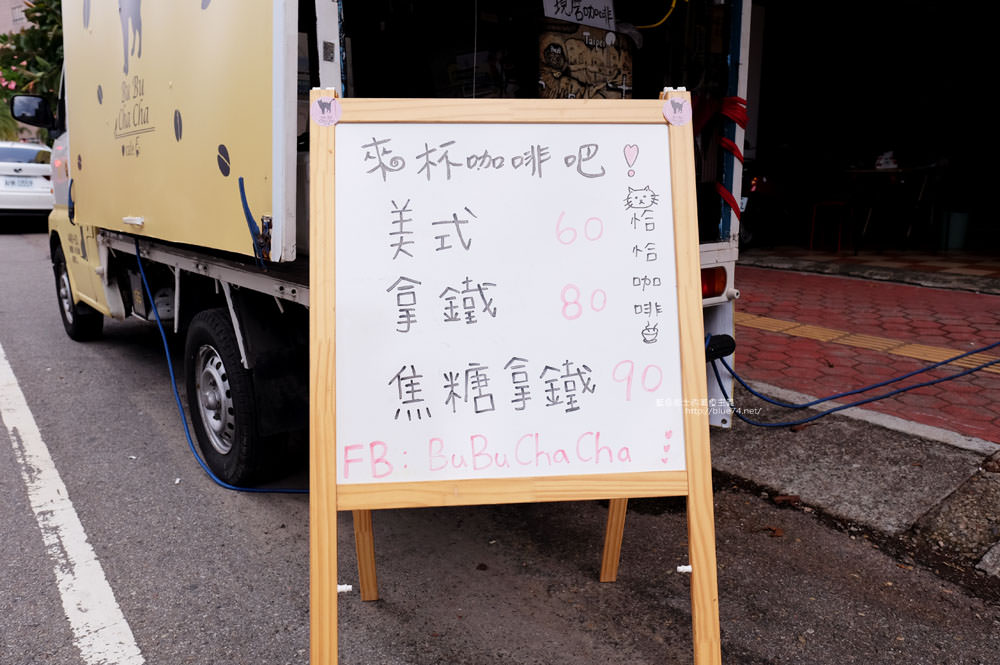 現居咖啡
Taipei
Bu Bu
Cha Cha
cafe
來杯咖啡吧!
美式 60
拿鐵 80
焦糖拿鐵 90
恰恰咖啡
FB: BuBuChaCha
http://blue74.net/